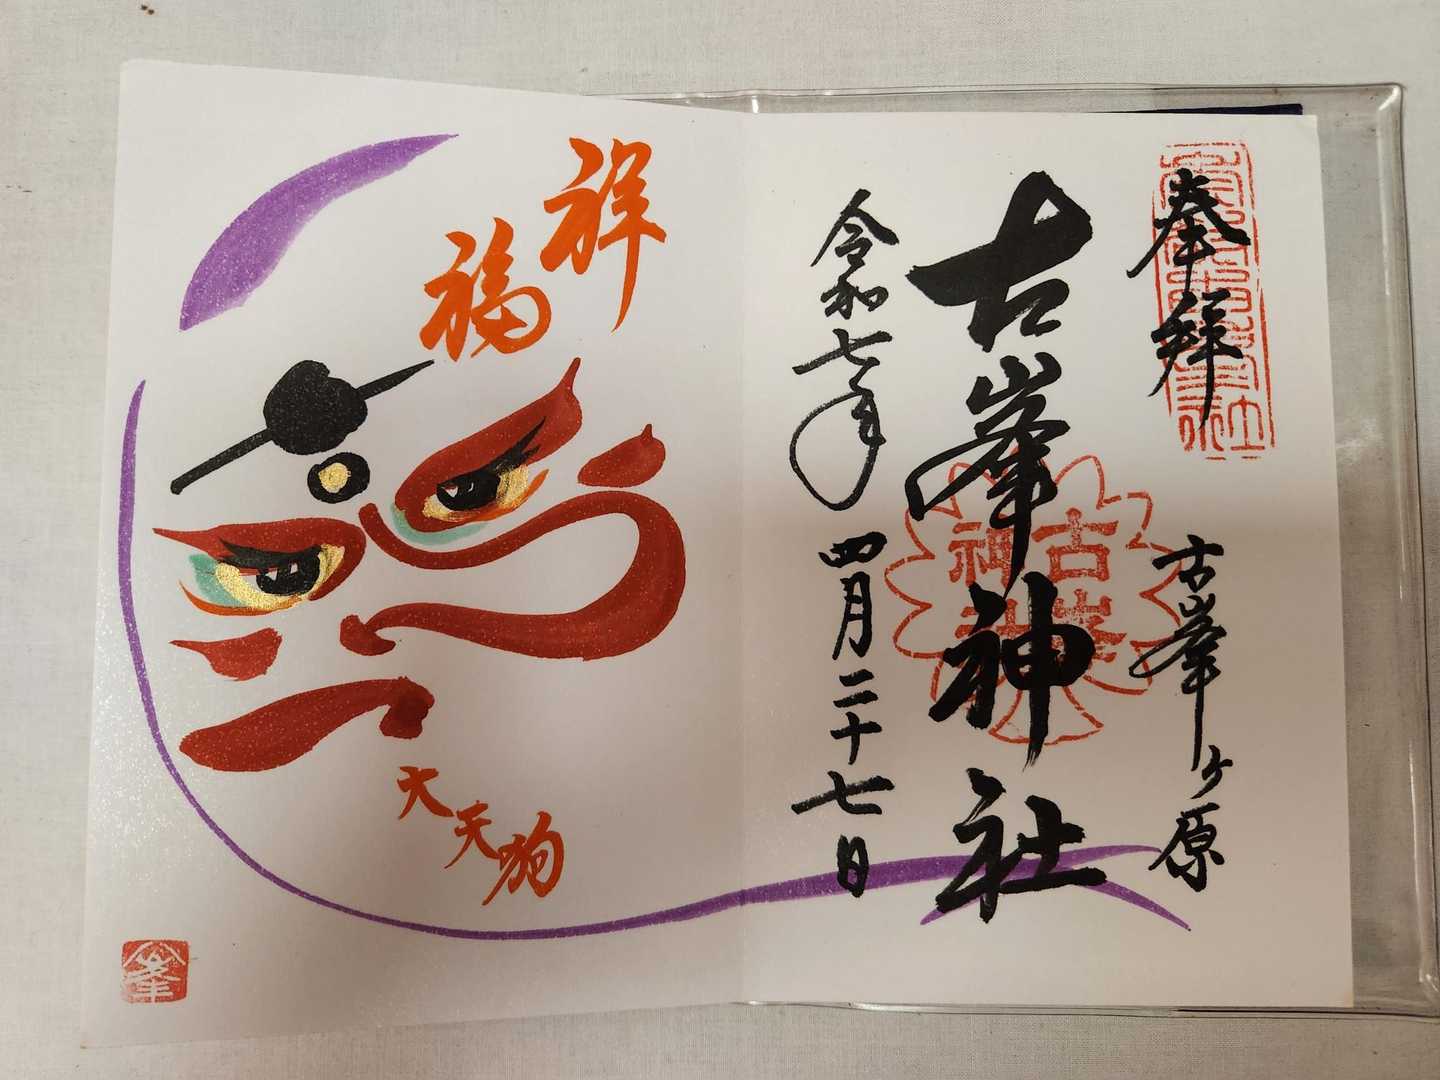 奉拝
古峯ヶ原
古峯神社
令和七年
四月二十七日
古峯
神社
祥福
大天狗
峯